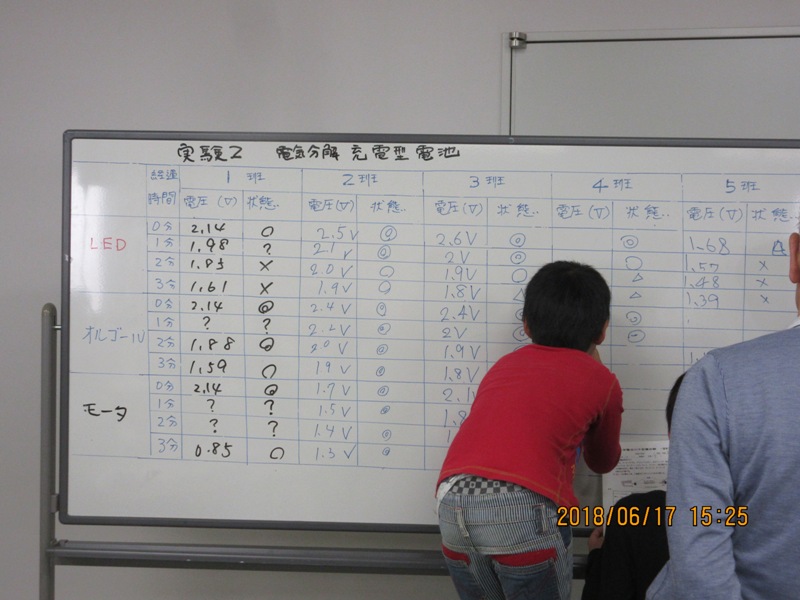 実験2 電気分解 充電型電池
経過時間 1班 2班 3班 4班 5班
電圧(V) 状態.. 電圧(V) 状態.. 電圧(V) 状態.. 電圧(V) 状態.. 電圧(V) 状態..
LED 0分 2.14 ○ 2.5V ◎ 2.6V ◎ ◎ 1.68
1分 1.98 ? 2.1V ◎ 2V ◎ ○ 1.57 ×
2分 1.83 × 2.0V ○ 1.9V ○ △ 1.48 ×
3分 1.61 × 1.9V ○ 1.8V △ △ 1.39 ×
オルゴール 0分 2.14 ◎ 2.4V ◎ 2.4V ◎ ◎
1分 ? ? 2.2V ◎ 2V ◎ ◎
2分 1.88 ◎ 2.0V ◎ 1.9V
3分 1.59 ○ 1.9V ◎ 1.8V
モータ 0分 2.14 ◎ 1.7V ◎
1分 ? ? 1.5V ◎
2分 ? ? 1.4V ◎
3分 0.85 ○ 1.3V ◎
2018/06/17 15:25